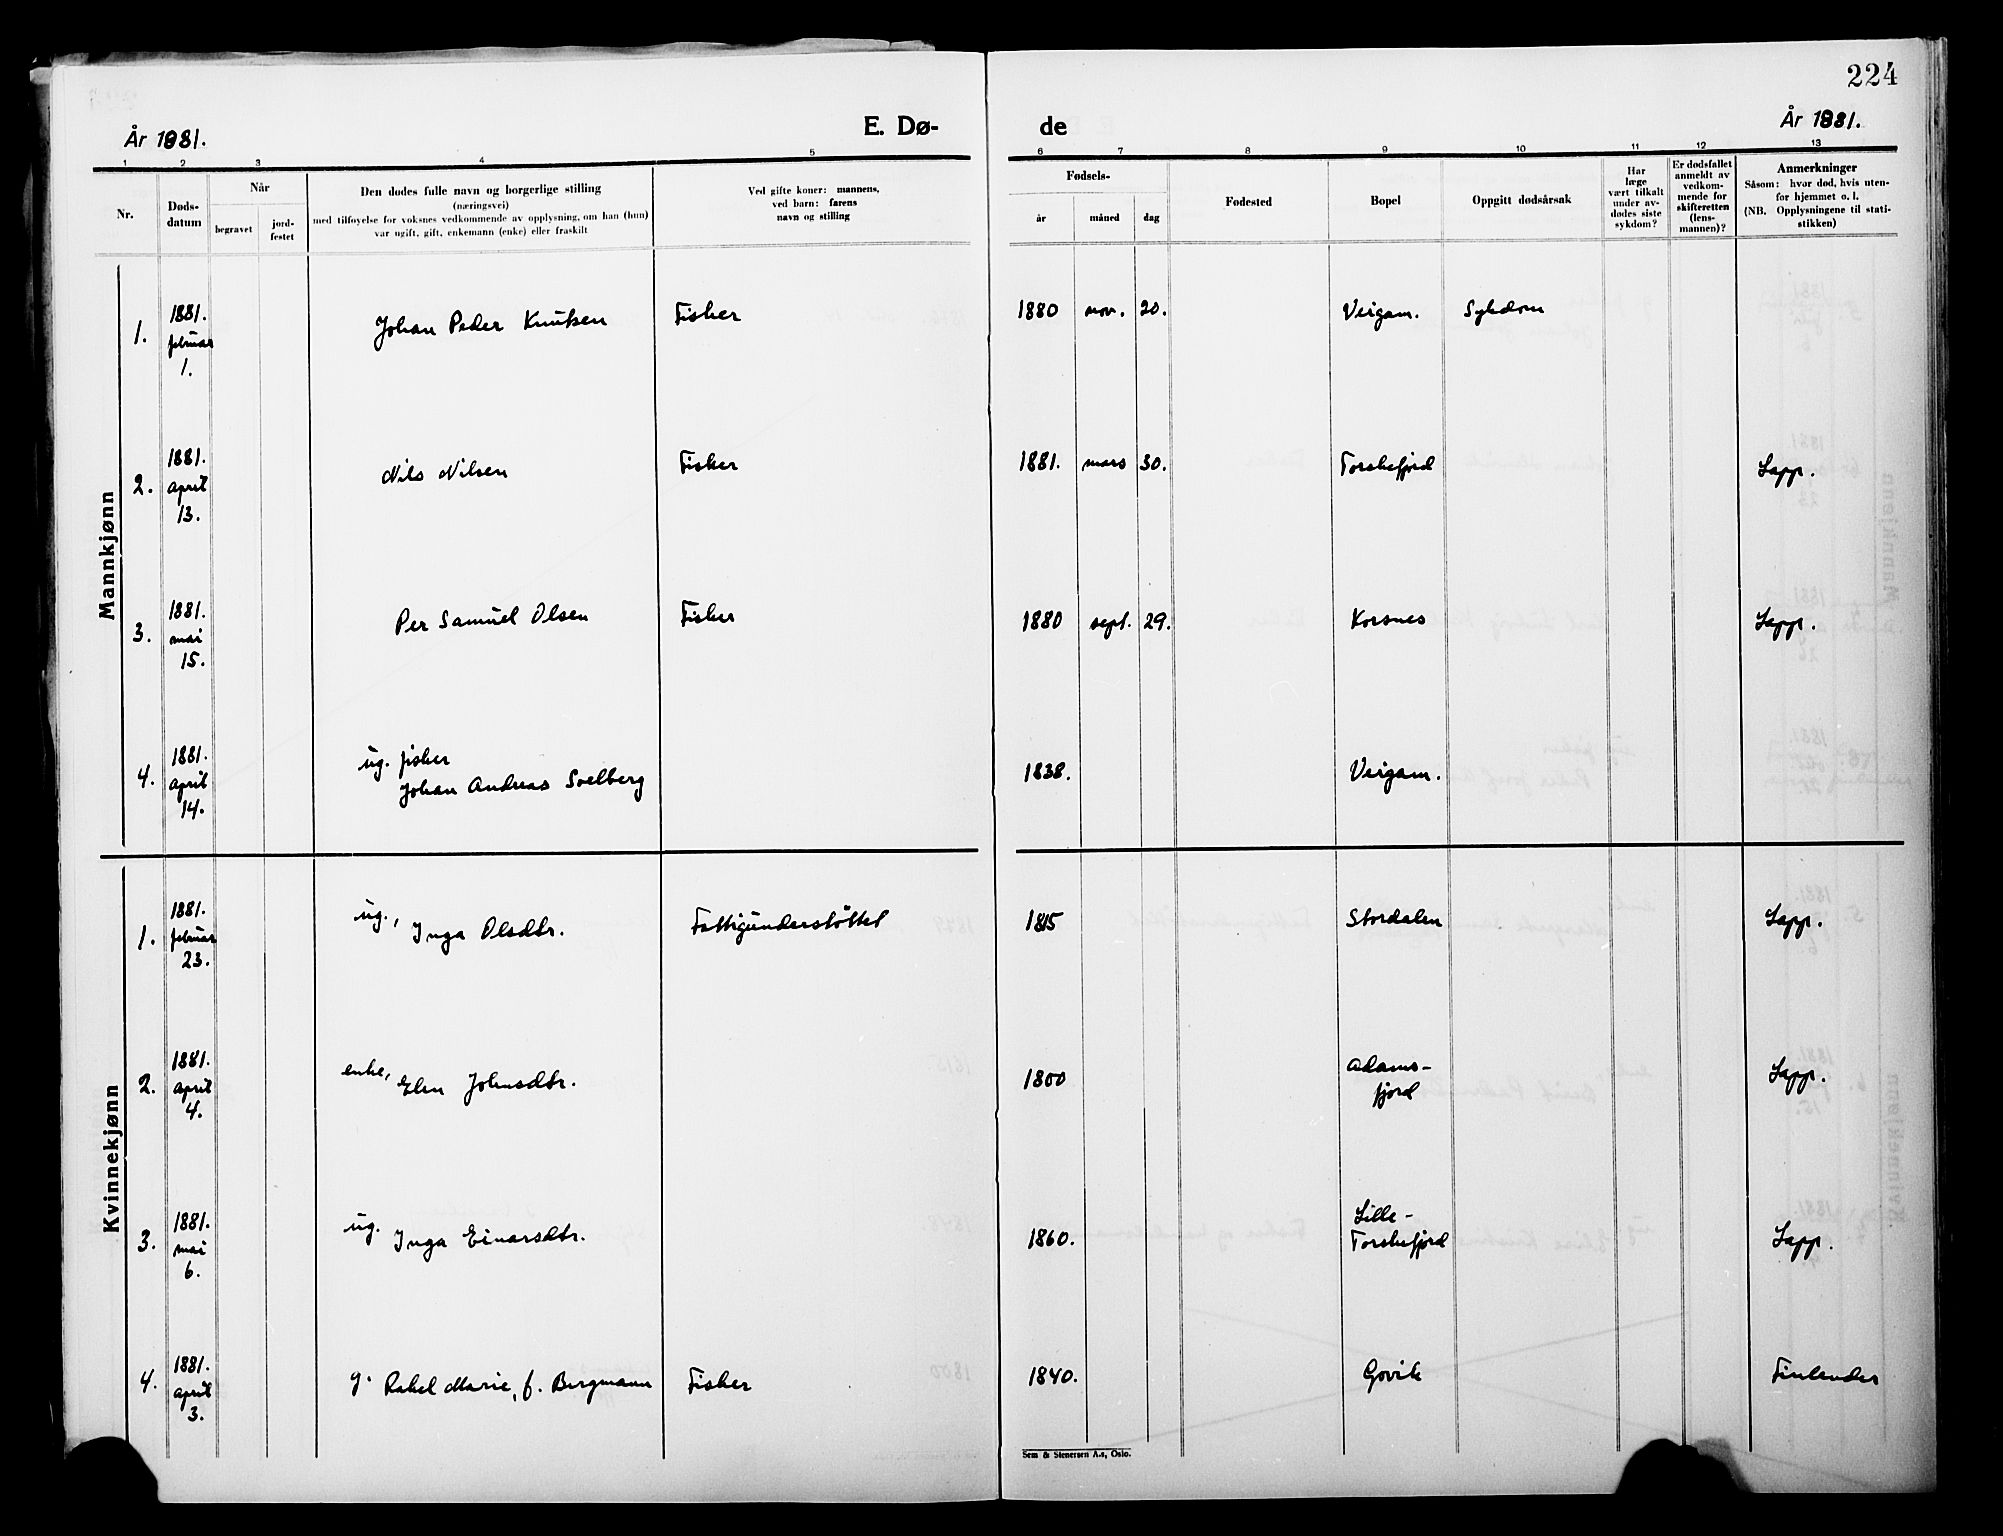 224
År 1881.
E. Dø-
de
År 1881.
1 2 3 4 5 6 7 8 9 10 11 12 13
Nr.
Døds-
datum
Når
begravet
jord-
festet
Den dødes fulle navn og borgerlige stilling
(næringsvei)
med tilføyelse for voksnes vedkommende av opplysning, om han (hun)
var ugift, gift, enkemann (enke) eller fraskilt
Ved gifte koner: mannens,
ved barn: farens
navn og stilling
Fødsels-
år
måned
dag
Fødested
Bopel
Oppgitt dødsårsak
Har
læge
vært tilkalt
under av-
dødes siste
sykdom?
Er dødsfallet
anmeldt av
vedkom-
mende for
skifteretten
(lens-
mannen)?
Anmerkninger
Såsom: hvor død, hvis uten-
for hjemmet o. l.
(NB. Opplysningene til stati-
stikken)
Mannkjønn
1. 1881. februar 1. Johan Peder Knutsen Fisker 1880 nov. 20. Veigam. Sykdom
2. 1881. april 13. Nils Nilsen Fisker 1881. mars 30. Torskefjord Lapp.
3. 1881. mai 15. Per Samuel Olsen Fisker 1880 sept. 29. Korsnes Lapp.
4. 1881. april 14. ug. fisker
Johan Andreas Soelberg 1838. Veigam.
Kvinnekjønn
1. 1881. februar 23. ug., Inga Olsdtr. Fattigunderstøttet 1815 Stordalen Lapp.
2. 1881. april 4. enke, Elen Johnsdtr. 1800 Adams-
fjord Lapp.
3. 1881. mai 6. ug. Inga Einarsdtr. 1860. Lille-
Torskefjord Lapp.
4. 1881. april 3. g. Rakel Marie, f. Bergmann Fisker 1840. Govik Finlender
Sem & Stenersen A.s, Oslo.